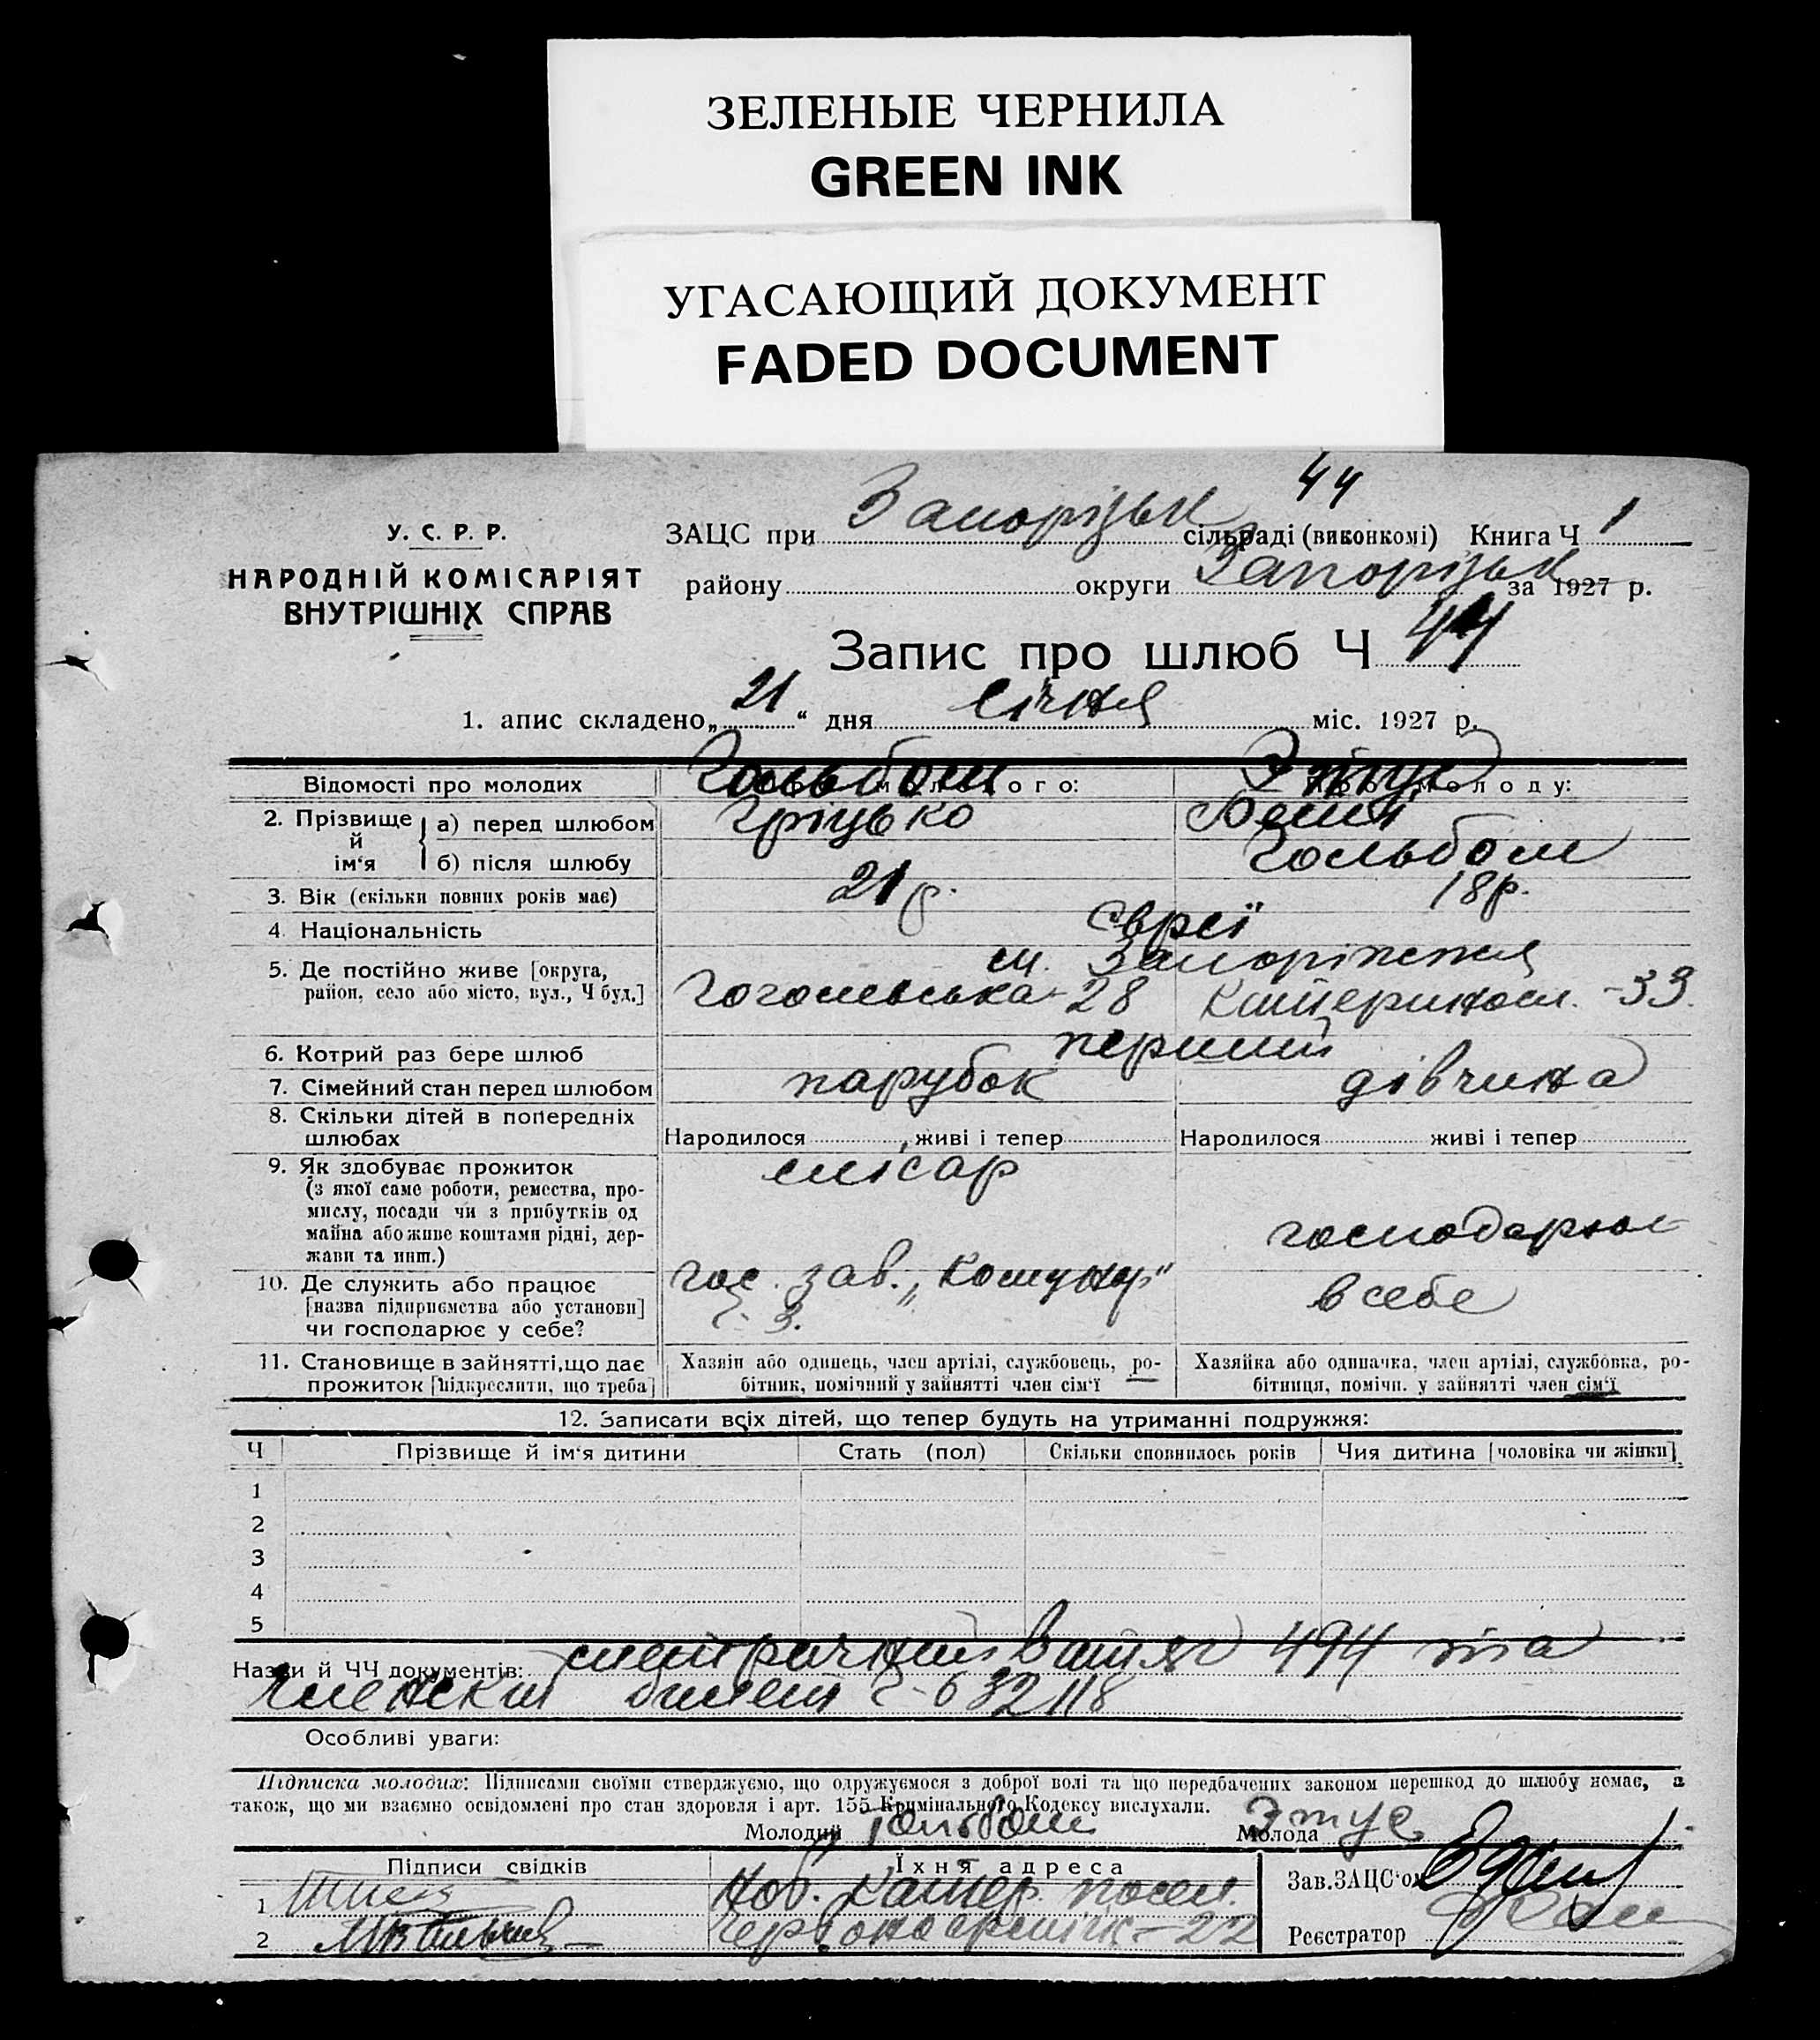 ЗЕЛЕНЫЕ ЧЕРНИЛА
GREEN INK
УГАСАЮЩИЙ ДОКУМЕНТ
FADED DOCUMENT
44
У. С. Р. Р.
НАРОДНІЙ КОМІСАРІЯТ
ВНУТРІШНІХ СПРАВ
ЗАЦС при Запорізьк сільраді (виконкомі) Книга Ч 1
району округи Запорізьк за 1927 р.
Запис про шлюб Ч 44
1. апис складено „21“ дня січня міс. 1927 р.
Відомості про молодих Гольбом ого: Этус молоду:
2. Прізвище й ім‘я а) перед шлюбом Гріцько
б) після шлюбу Гольбом
3. Вік (скільки повних років має) 21 р. 18 р.
4. Національність Євреї
5. Де постійно живе [округа, район, село або місто, вул., Ч буд.] м. Запоріжжя
Гоголевська - 28 Катериносл. - 33.
6. Котрий раз бере шлюб перший
7. Сімейний стан перед шлюбом парубок дівчина
8. Скільки дітей в попередніх шлюбах Народилося живі і тепер Народилося живі і тепер
9. Як здобуває прожиток слісар
(з якої саме роботи, ремества, про-
мислу, посади чи з прибутків од
майна або живе коштами рідні, дер-
жави та инш.)
10. Де служить або працює гос. зав. „Комунар" в себе
[назва підприємства або установи] ч. 3.
чи господарює у себе?
11. Становище в зайнятті, що дає Хазяін або одинець, член артілі, службовець, ро- Хазяйка або одиначка, член артілі, службовка, ро-
прожиток [підкреслити, що треба] бітник, помічний у зайнятті член сім‘ї бітниця, помічн. у зайнятті член сім‘ї
12. Записати всіх дітей, що тепер будуть на утриманні подружжя:
Ч Прізвище й ім‘я дитини Стать (пол) Скільки сповнилось років Чия дитина [чоловіка чи жінки]
1
2
3
4
5
Назви й ЧЧ документів: метричний витяг 494 та
Членский билет ч- 632118
Особливі уваги:
Підписка молодих: Підписами своїми стверджуємо, що одружуємося з доброї волі та що передбачених законом перешкод до шлюбу немає, а
також, що ми взаємно освідомлені про стан здоровля і арт. 155 Кримінального Кодексу вислухали.
Молодий Гольбом Молода Этус
Підписи свідків Їхня адреса Зав. ЗАЦС‘ом
1 Ноб. Катер. посел.
2 22 Реєстратор